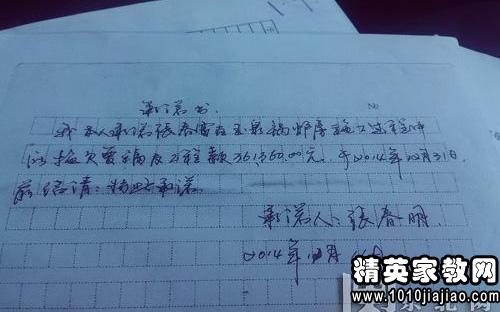 承诺书.
我本人承诺张春雷在玉泉锅炉房施工过程中
所拖欠 程款361360.00元. 于2014年12月31日
前结清: 特此承诺.
承诺人: 张春明
2014年12月
精英家教网
www.1010jiajiao.com